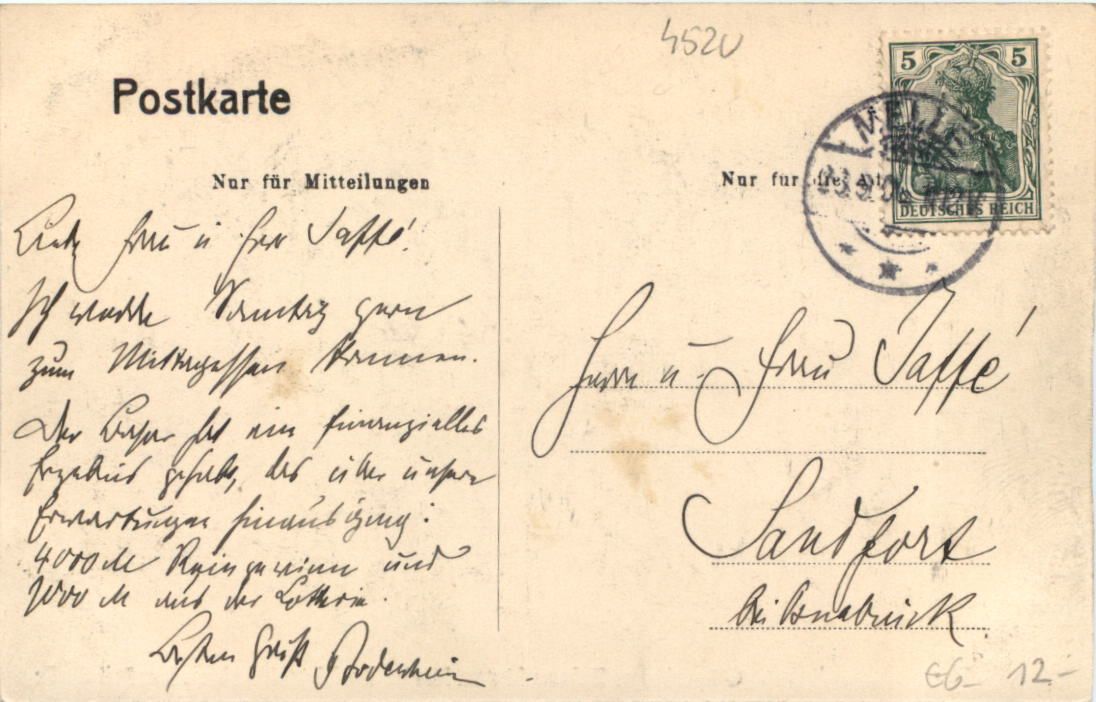 4520
Postkarte
5 5
MELLE
DEUTSCHES REICH
Nur für Mitteilungen
Nur für die
Liebe Frau u Herr Jaffé!
Ich werde Sonntag gern
zum Mittagessen kommen.
Der Basar hat ein finanzielles
Ergebnis gehabt, das über unsere
Erwartungen hinausging:
4000 M Reingewinn und
1000 M aus der Lotterie.
Besten Gruß
Herrn u. Frau Jaffé
Sandfort
bei Osnabrück
€6- 12-